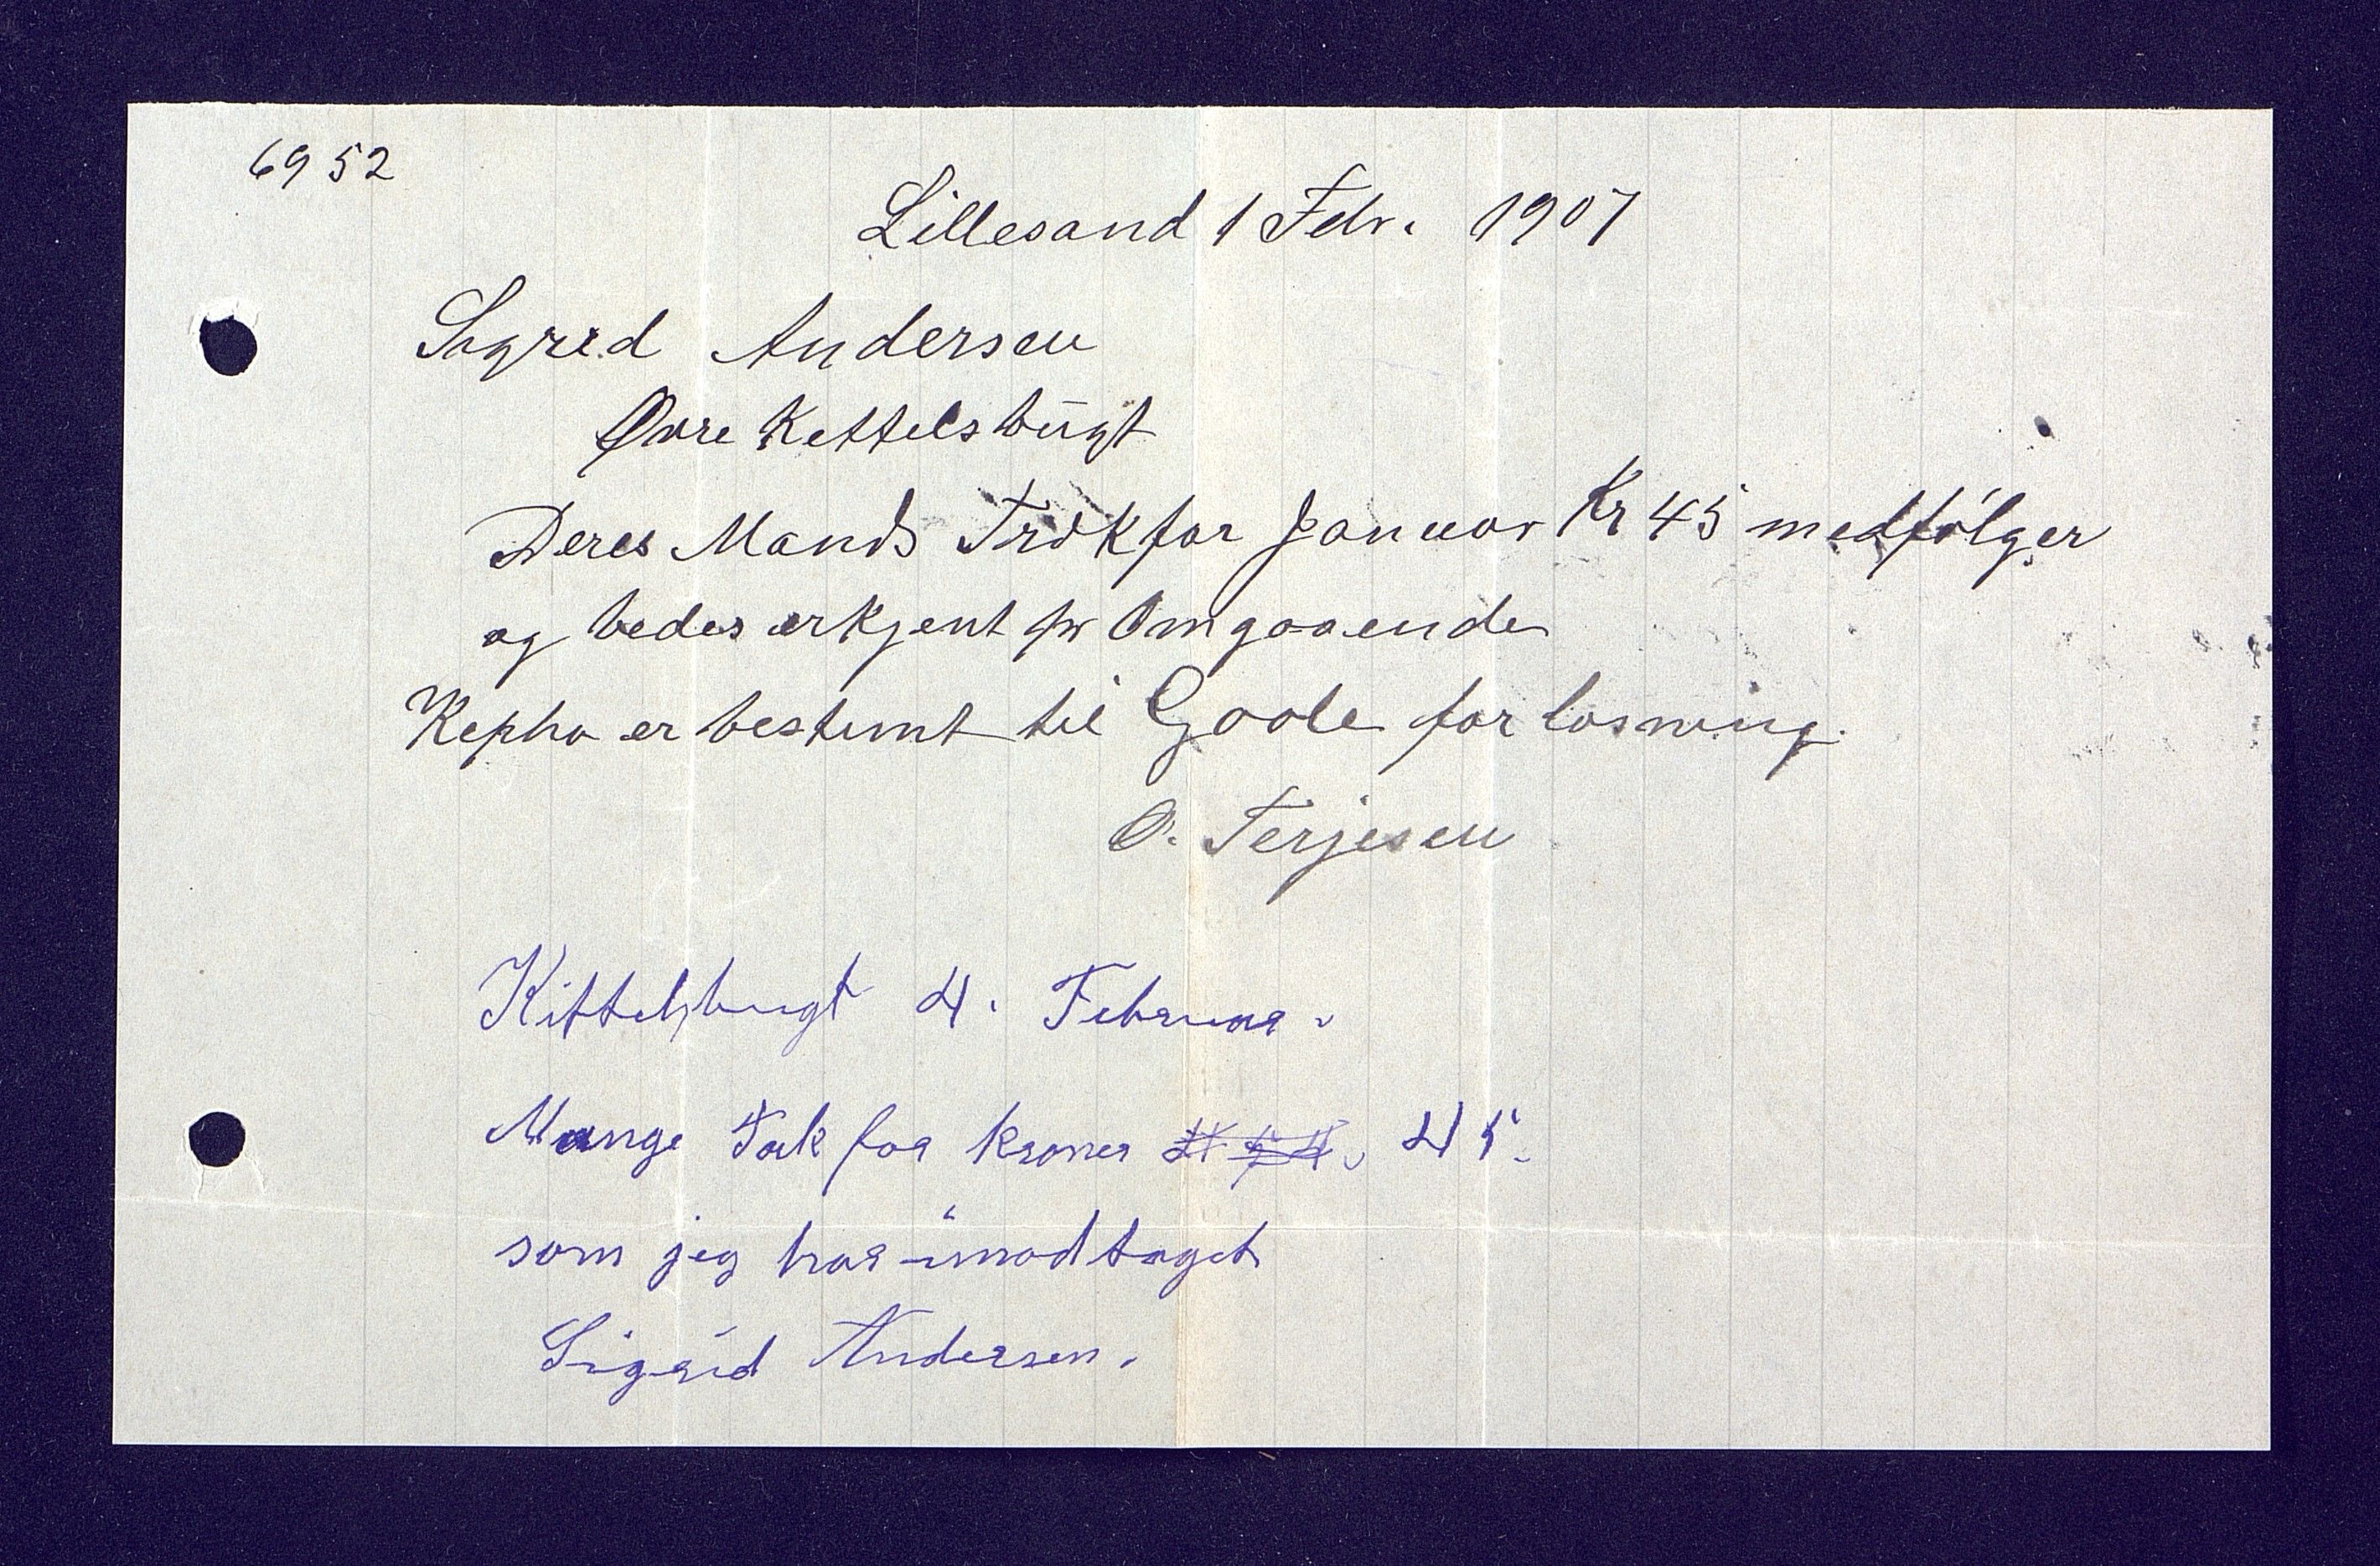 6952
Lillesand 1 Febr. 1907
Sigrid Andersen
Øvre Kettelsbugt
Deres Mands Træk for Januar Kr 45 medfölger
og bedes erkjent pr Omgaaende
Kepha er bestemt til Goole for losning.
O. Terjesen
Kittelsbugt 4. Februar.
Mange Tak for kroner 45.
som jeg har imodtaget
Sigrid Andersen.